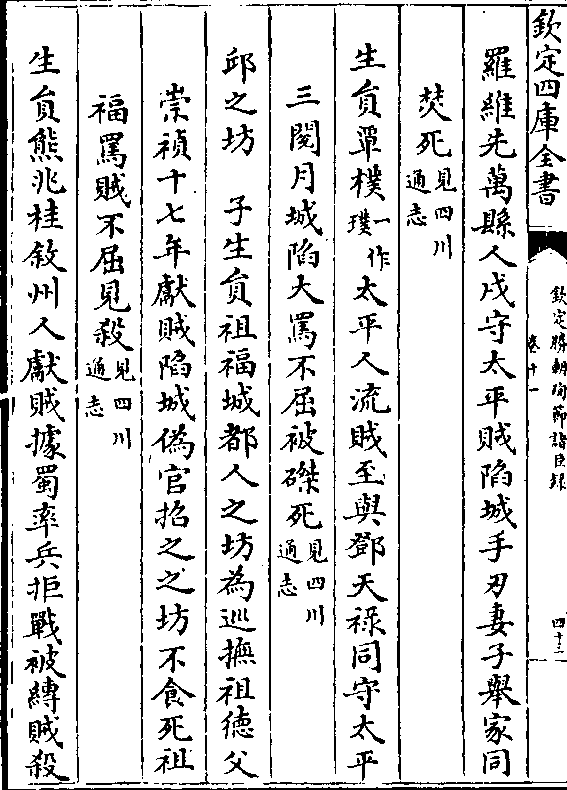 欽定四庫全書
欽定勝朝殉節諸臣錄
卷十一
四十三
羅維先萬縣人戍守太平賊陷城手刃妻子舉家同
焚死見四川通志
生員覃樸一作璞太平人流賊至與鄧天祿同守太平
三閱月城陷大罵不屈被磔死見四川通志
邱之坊　子生員祖福城都人之坊為巡撫祖徳父
崇禎十七年獻賊陷城偽官招之之坊不食死祖
福罵賊不屈見殺見四川通志
生員熊兆桂敘州人獻賊據蜀率兵拒戰被縛賊殺